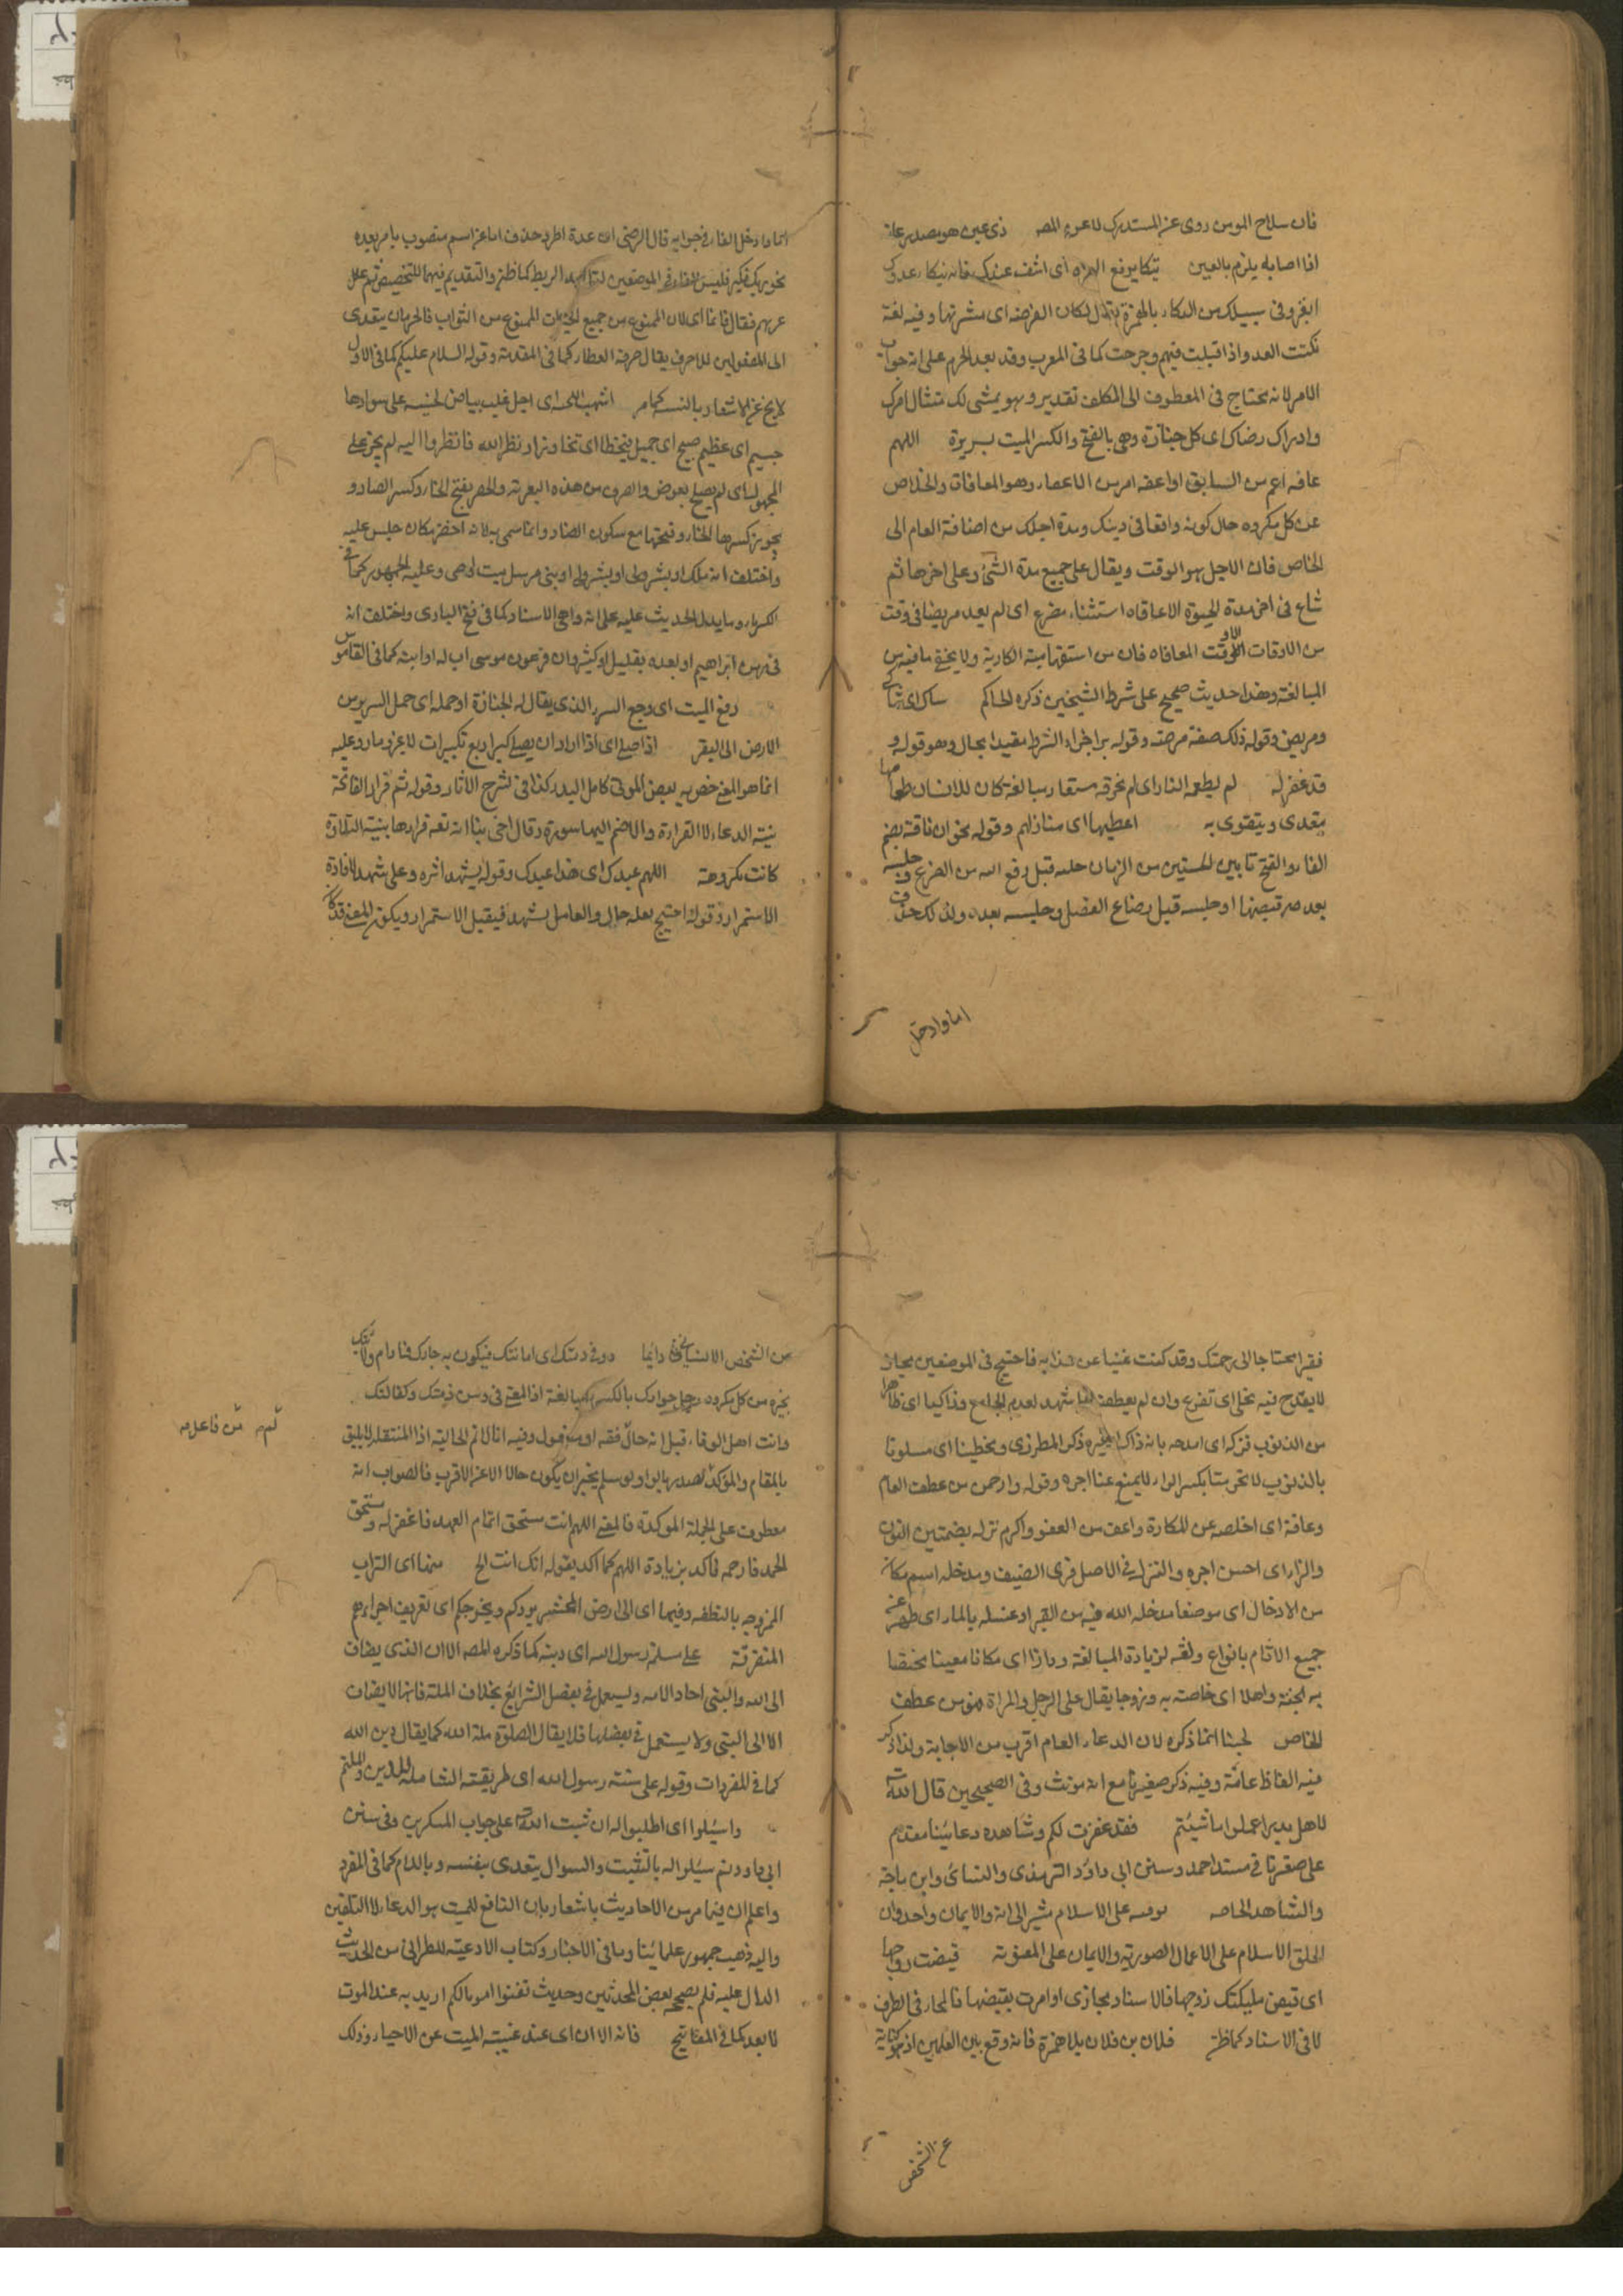 فان سلاح المومن روى عن المستدرك لاعوه المصه ذى عين هو بصدر عاىه
اذا اصابه يلزم بالعين ينكا يرفع الهمزه اى اشف عبدك فانه ينكا عدوك
اى يغزو فى سبيلك من النكاء بالهمزة يقال نكان القرحه اى قشرتها وفيه لغة
نكئت العدو اذا قتلت فيهم وجرحت كما فى المغرب وقد بعد الجزم على انه جواب
الامر لانه يحتاج فى المعطوف الى المكلف تقدير وهو يمشى لك امتثال امرك
وادراك رضاك اى كل جنازة وهى بالفتح والكسر الميت بسريرة اللهم
عافه اعم من السابق او اعفه امر من الاعفاء وهو المعافات والخلاص
عن كل مكروه حال كونه واقعا فى دينك ومدة اجلك من اضافة العام الى
الخاص فان الاجل هو الوقت ويقال على جميع مدة الشئ وعلى اخرها ثم
شاع فى اخر مدة الحيوة الا عافاه استثناء مفرع اى لم يعد مريضا فى وقت
من الاوقات الا وقت المعافاه فان من استفهامية انكارية ولا يخفى ما فيه من
المبالغة وهذا حديث صحيح على شرط الشيخين ذكره الحاكم شاك اى شاكى
ومريض وقوله ذلك صفة مرضه وقوله براجزاء الشرط مقيدا بحال وهو قوله و
قد غفر له لم يطعمه النار اى لم تحرقه مستعار مبالغة كان للانسان طعاما
يتغدى ويتقوى به اعطيها اى منازلهم وقوله نحو ان ناقة بضم
الفاء والفتح ما بين الحلبتين من الزمان حلبه قبل رفع اللبن من الضرع وحلبه
بعد صر قبضها او حلبه قبل رضاع الفصيل وحلبه بعده ولذلك حذف
اما وادخل
اما وادخل الفاء فى جوابه قال الرضى ان عدة اطرد حذف اما عن اسم منصوب بامر بعده
نحو ربك فكبر فليس الفاء فى الموضعين لتاكيد الربط كما ظن والتقديم فيهما للتخصيص ثم علل
عن بهم فقال فانما اى لان الممنوع من جميع الخيرات الممنوع من الثواب فالحرمان يتعدى
الى المفعولين للاحرف يقال حرمه العطاء كما فى المقدمة وقوله السلام عليكم كما فى الاول
لا يخ عن الاشعار بالنسبة كما مر اشهب اللحية اى رجل غلب بياض لحيته على سوادها
جسيم اى عظيم صبيح اى جميل فتخطا اى تخاوز او نظر الله فانظروا اليه لم يجز على
المجهول اى لم يصلح بعوض والصرف من هذه البعرة والخضر بفتح الخاء وكسر الضاد و
يجوز كسرها الخاء وفتحها مع سكون الضاد وانما سمى به لانه اخضر مكان جلس عليه
واختلف انه ملك او بشر ولى او بشر نبى او نبى مرسل ميت او حى وعليه الجمهور كما فى
الكرمانى وما يدل الحديث عليه على انه واهى الاسناد كما فى فتح البارى واختلف انه
فى زمن ابراهيم او بعده بقليل او كثير وان فرعون موسى اب له او ابنه كما فى القاموس
رفع الميت اى رجع السرير الذى يقال له الجنازة او حمله اى حمل السرير من
الارض الى القبر اذا صلى اى اذا اراد ان يصلى كبر اربع تكبيرات لا يجز وما روى عليه
انما هو المغ خص به بعض الموتى كامل البدر كذا فى شرح الاثار وقوله ثم قرا الفاتحة
بنية الدعاء لا القراءة والا ضم اليها سورة وقال اخى بنا انه نعم قراءها بنية التلاوة
كانت مكروهة اللهم عبدك اى هذا عبدك وقوله يشهد اثره وعلى شهد لافادة
الاستمرار وقوله احتيج بعله حال والعامل يشهد فيقبل الاستمرار ويكون المعنى قد كان
فقيرا محتاجا الى رحمتك وقد كنت غنيا عن عذابه فاحتيج فى الموضعين مجاز
لا يقدح فيه تخلى اى تفرغ وان لم يعطف لفظ شهد لعدم الجامع وزاكيا اى طاهرا
من الذنوب فزكه اى امدحه بانه زاك الخيره ذكر المطرزى ومخطيا اى مسلوثا
بالذنوب لا تحرمنا بكسر الراء لا يمنع عنا اجره وقوله وارحمه من عطف العام
وعافه اى اخلصه عن المكاره واعف من العفو واكرم نزله بضمتين النون
والزاء اى احسن اجره والنزل فى الاصل قرى الضيف ومدخله اسم مكان
من الادخال اى موضعا مدخله الله فيه من القبر اوغسله بالماء اى طهر عن
جميع الاثام بانواع ونقه لزيادة المبالغة ودارا اى مكانا معينا مختصا
به لجنة واهلا اى خاصته به وزوجا يقال على الرجل والمراة فهو من عطف
الخاص لحينا انما ذكره لان الدعاء العام اقرب من الاجابة ولذا ذكر
فيه الفاظ عامة وفيه ذكر صغيرنا مع انه مونث وفى الصحيحين قال الله تع
لاهل بدر اعملوا ما شئتم فقد غفرت لكم وشاهده دعائنا مقدم
على صغرنا فى مسند احمد وسنن ابى داود الترمذى والنسائى وابن ماجة
والشاهد الحاصه توفيه على الاسلام مشير الى انه والايمان واحد وان
اطلق الاسلام على الاعمال الصورية والايمان على المعنوية قبضت روحها
اى قبض مليكتك زوجها فالاسناد مجازى او امرت بقبضها فالمجاز فى الطرف
لا فى الاسناد كما ظن فلان بن فلان بلا همزة فانه وقع بين العلمين اذ هو كناية
عن الشخص
عن الشخص الانسانى دائما دو فى ذمتك اى امانتك فيكون به جارك فنا دام ولايتك
بخيره من كل مكروه وحبل جوارك بالكسر مبالغة اذا المعنى فى ومن ذمتك وكفالتك
وانت اهل الوفاء قبل انه حال فقه او مفعول وفيه انا لا ثم الحالية اذا المنتقله لا يليق
بالمقام والمؤكدة تصدرها بالواو ولو سلم يخبر ان يكون حالا الا عن الاقرب فالصواب انه
معطوف على الجملة الموكدة فالمعنى اللهم انت مستحق اتمام العهد فاغفر له ومستحق
الحمد فارحمه فاكد بزيادة اللهم كما اكد بقوله انك انت الخ منها اى التراب
الممزوجه بالنطفه وفيها اى الى ارض المحشر يردكم ويخرجكم اى تفريق اجزاءكم
المتفرقة على ملة رسول الله اى دينه كما ذكره المصه الا ان الذى يضاف
الى الله والنبى احاد الامه ويستعمل فى بعض الشرايع بخلاف الملة فانها لا يضاف
الا الى النبى ولا يستعمل فى بعضها فلا يقال الصلوة ملة الله كما يقال دين الله
كما فى المفردات وقوله على سنة رسول الله اى طريقته الشاملة للدين والملة
واسئلوا اى اطلبوا له ان ثبت الله على جواب المنكرين وفى سنن
ابى داود ثم سئلوا له بالتثبيت والسوال يتعدى بنفسه وباللام كما فى المفرد
واعلم ان فيها مر من الاحاديث باشعار بان النافع للميت هو الدعاء لا التلقين
واليه ذهب جمهور علمائنا وما فى الاخبار وكتاب الادعية للطبرانى من الحديث
الدال عليه فلم يصححه بعض المحدثين وحديث لقنوا امواتكم اريد به عند الموت
لا بعد كما فى المفاتيح فانه الان اى عند غيبته الميت عن الاحياء وذلك